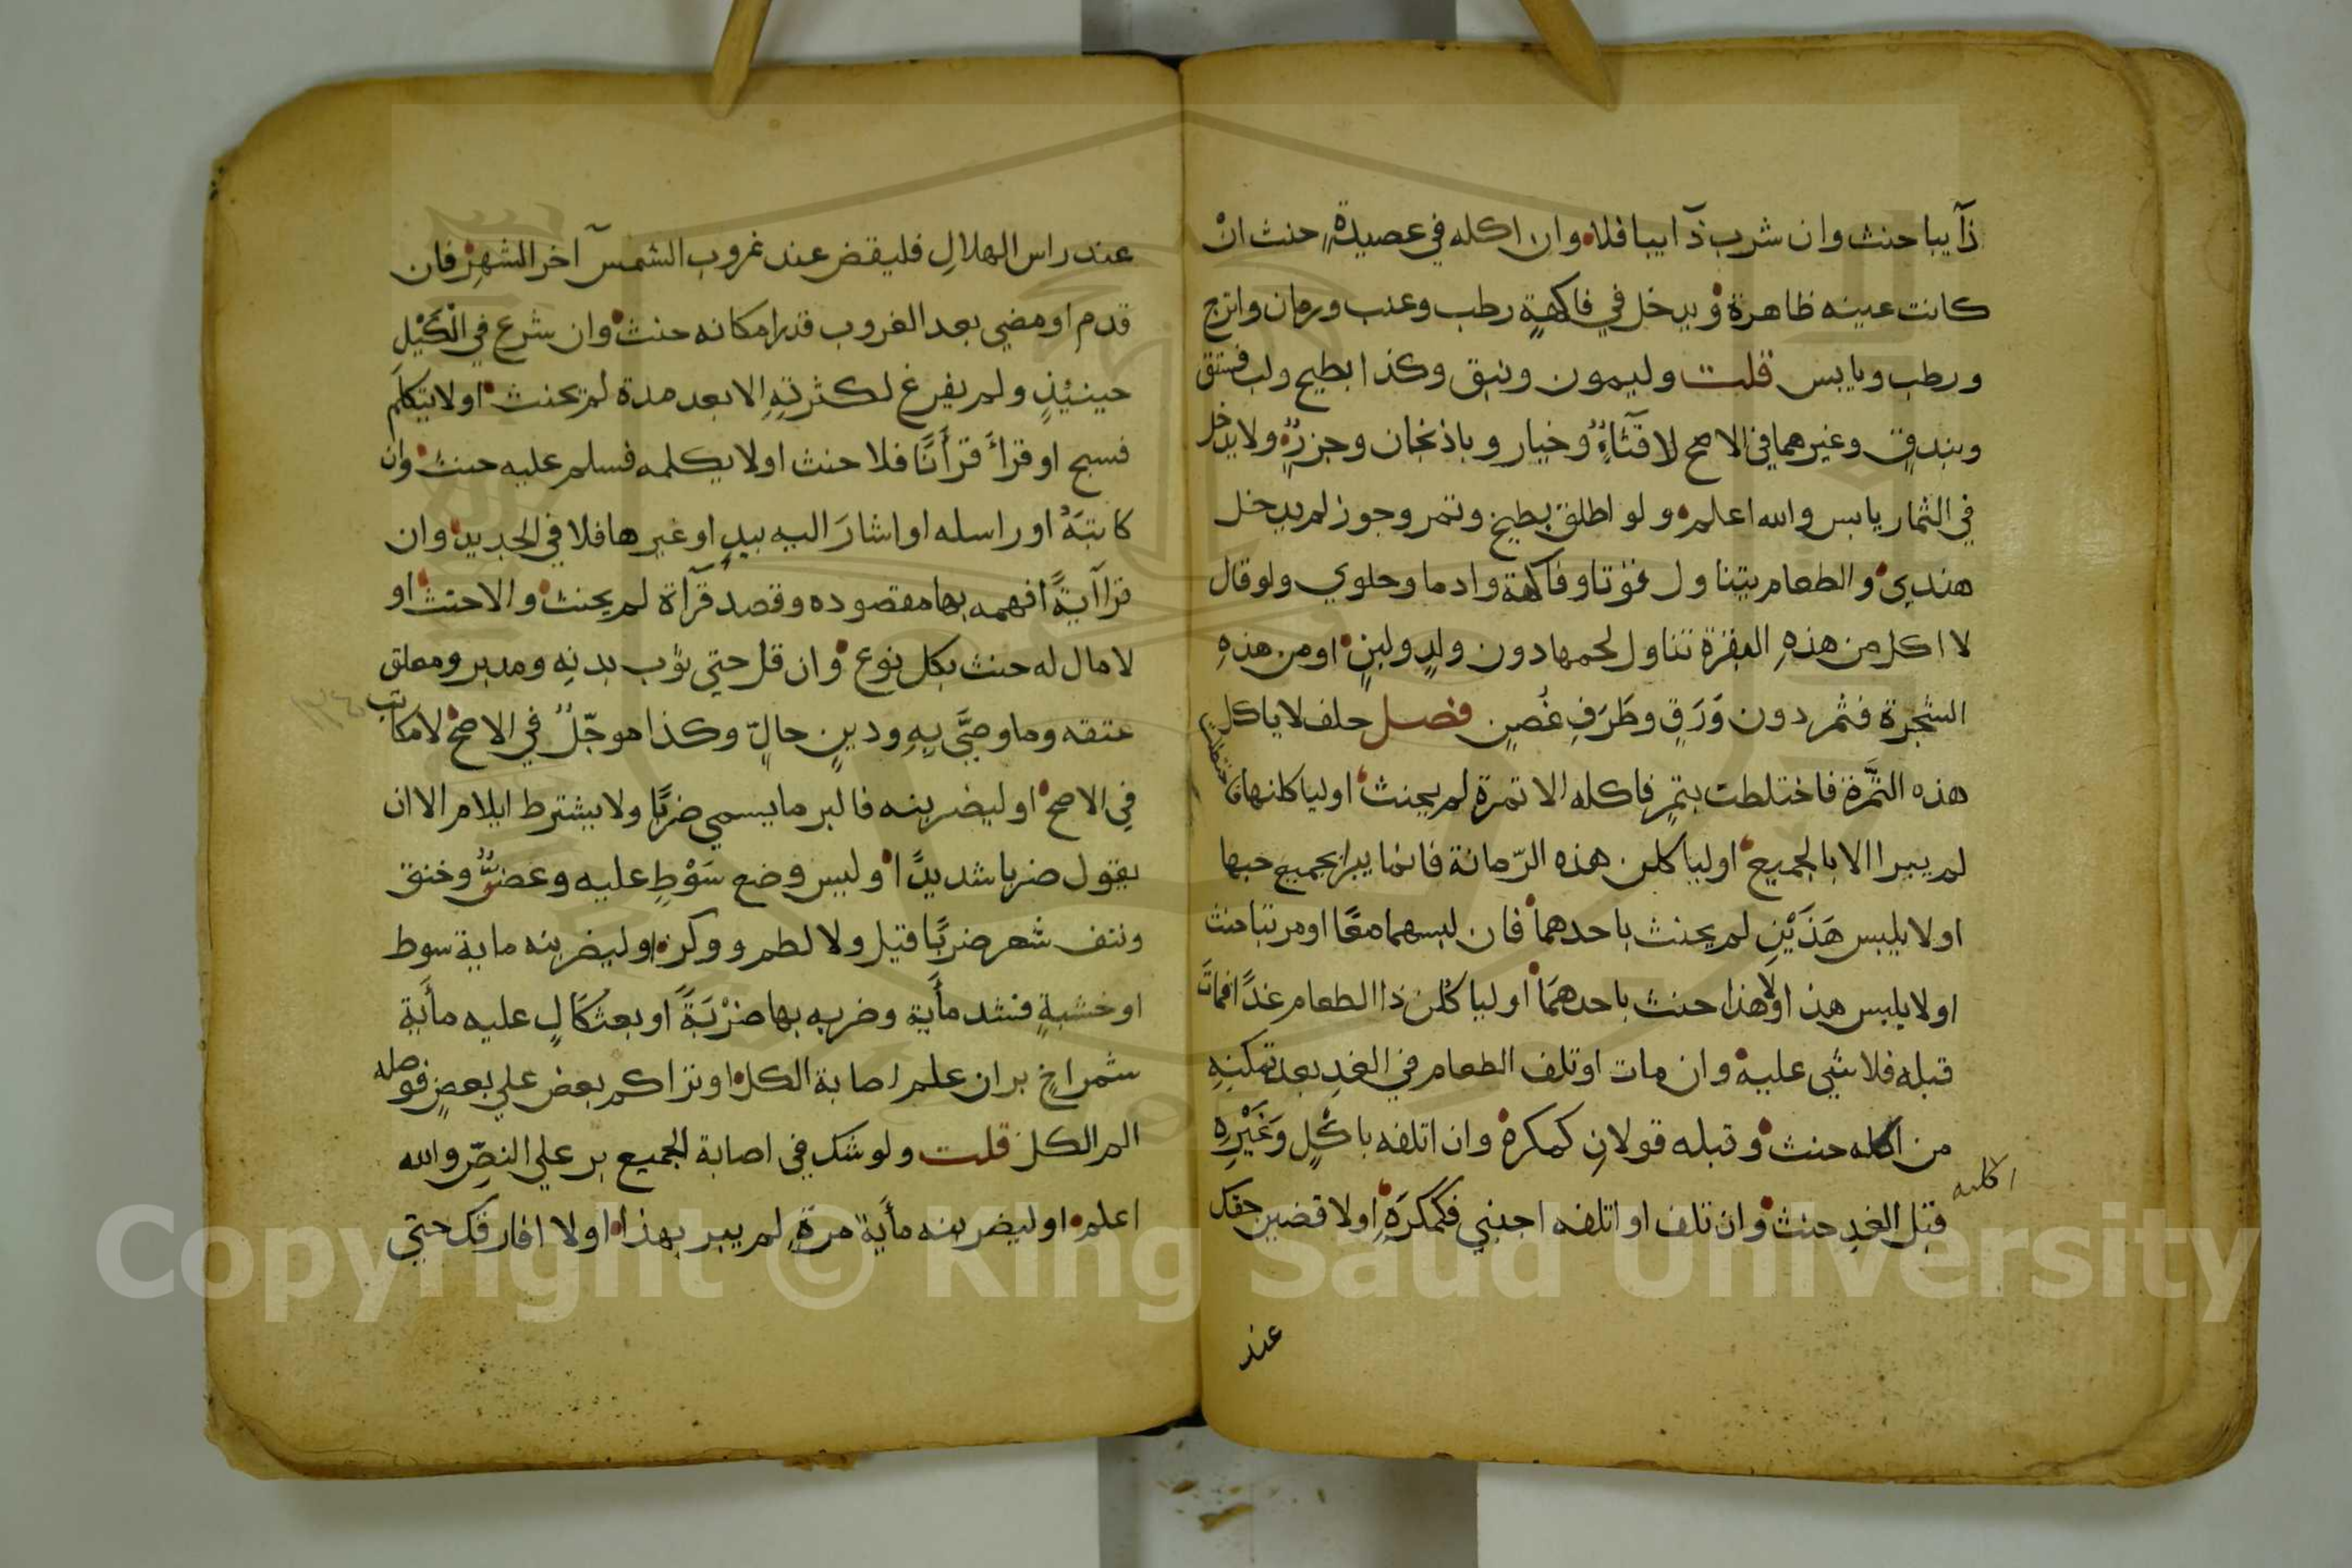 ذآيبا حنث وان شرب ذآيبا فلا وان اكله في عصيدةٍ حنث انْ
كانت عينه ظاهرة ويدخل في فاكهةٍ رطب وعنب ورمان واترج
ورطب ويابس قلت وليمون ونبق وكذا بطيح ولب فستق
وبندقٍ وغيرهما في الاصح لا قثآءٌ وخيار وباذنجان وجزرٌ ولا يدخل
في الثمار يابس والله اعلم ولو اطلق بطيخ وتمر وجوز لم يدخل
هندي والطعام يتناول قوتا وفاكهة وادما وحلوي ولو قال
لا اكل من هذهِ البقرة تناول لحمها دون ولدٍ ولبنٍ او من هذهِ
الشجرة فثمر دون وَرَقٍ وطَرَفِ غُصنٍ فصل حلف لا ياكل
هذه التَّمرة فاختلطت بتمرٍ فاكله الا تمرة لم يحنث او لياكلنها فاختلطت
لم يبرا الا بالجميع او لياكلن هذه الرّمانة فانما يبرا بجميع حبها
او لا يلبس هَذَيْنِ لم يحنث باحدهما فان لبسهما معًا او مرتبا حنث
او لا يلبس هذا ولا هذا حنث باحدهمَا او لياكُلن ذا الطعام غدًا فماتَ
قبله فلا شي عليه وان مات او تلف الطعام في الغدِ بعد تمكنِهِ
من اكله حنث وقبله قولانِ كمكره وان اتلفه باكْلٍ وَغَيْرِهِ
اكله
قبل الغدِ حنث وان تلف او اتلفه اجنبي فكمكرَهٍ او لا قضين حقك
عند
عند راس الهلالِ فليقض عند غروب الشمس آخر الشهرِ فان
قدم او مضي بعد الغروب قدر امكانه حنث وان شرع في الْكَيْلِ
حينئِذٍ ولم يفرغ لكثرتِهِ الا بعد مدة لم يحنث او لا يتكلّم
فسبح او قرأَ قرأنًا فلا حنث او لا يكلمه فسلم عليه حنث وان
كاتبَهُ او راسله او اشارَ اليه بيدٍ او غيرها فلا في الجديد وان
قرا آيةً افهمه بها مقصوده وقصد قرآة لم يحنث والا حنث او
لا مال له حنث بكل نوع وان قل حتي ثوب بدنِهِ ومدبر ومعلق
عتقه وما وصّى بِهِ ودينٍ حالٍّ وكذا موجّلٌ في الاصح لا مكاتب
١٣٤
في الاصح او ليضربنه فالبر ما يسمي ضربًا ولا يشترط ايلام الا ان
يقول ضربا شديدًا وليس وضع سَوْطٍ عليه وعضٌّ وخنق
ونتف شعر ضربًا قيل ولا لطم ووكز او ليضربنه ماية سوط
او خشبةٍ فشد مأية وضربه بها ضرْبَةً او بعثكَالٍ عليه مأية
شمراخٍ بر ان علم اصابة الكل او تراكم بعض علي بعض فوصله
الم الكل قلت ولو شك في اصابة الجميع بر علي النصِّ والله
اعلم او ليضربنه مأية مرةٍ لم يبر بهذا او لا افارقك حتي
Copyright © King Saud University